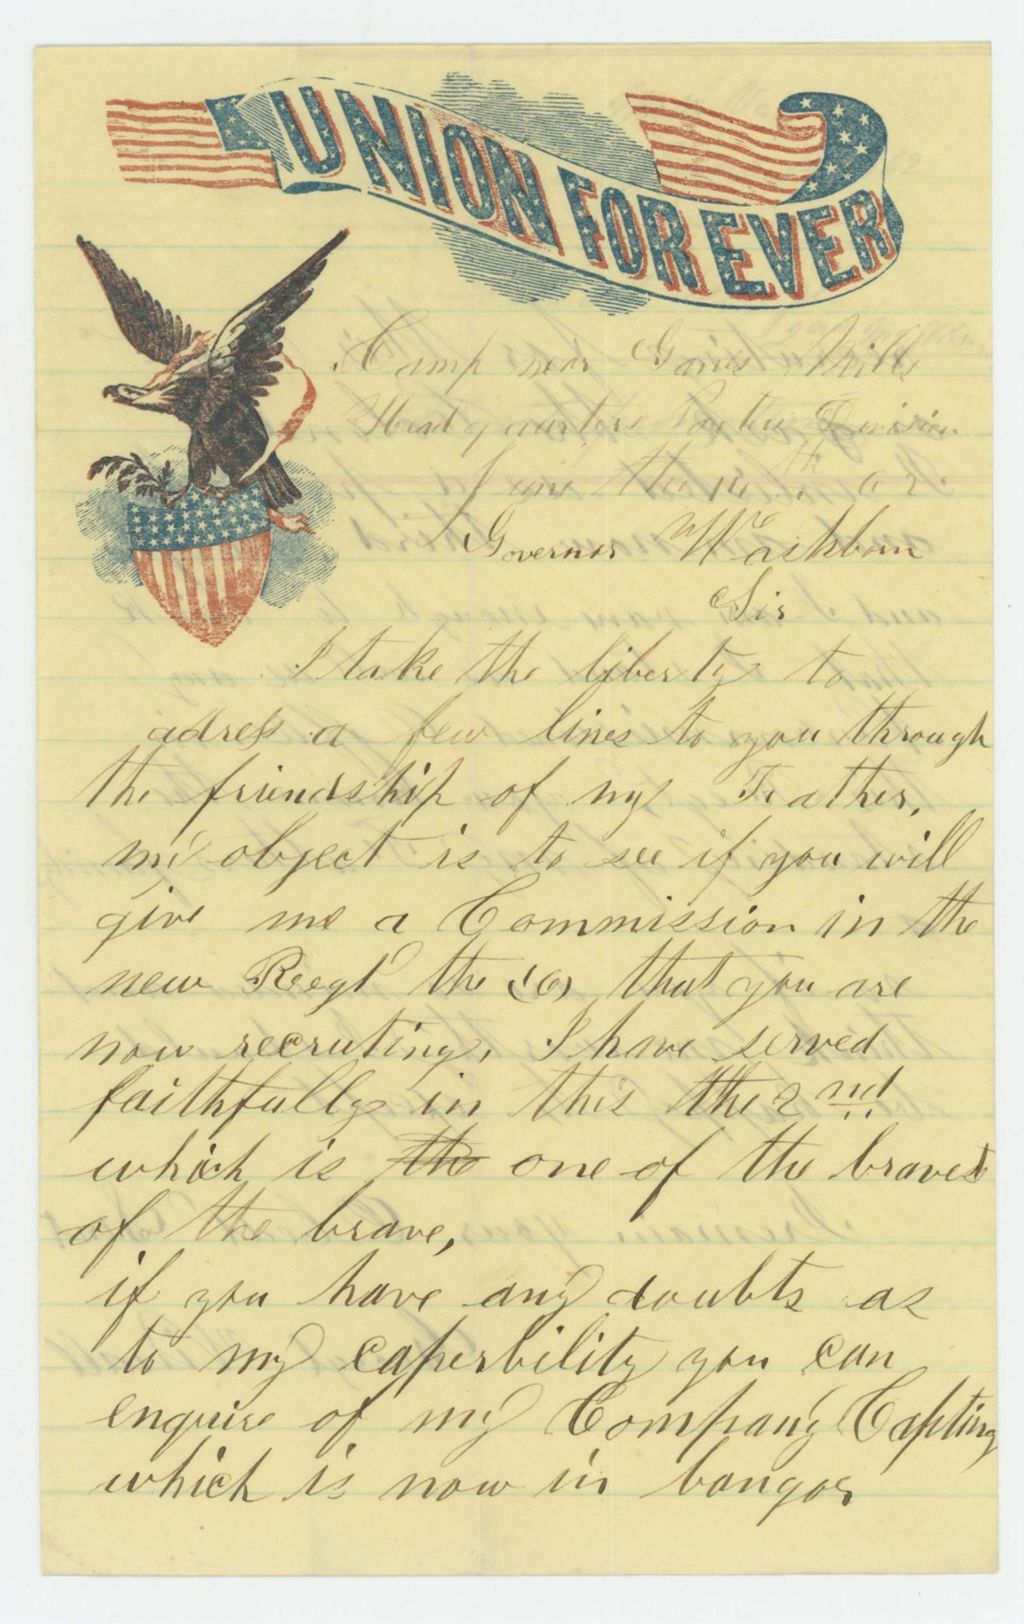 UNION FOR EVER
Camp near Gains Mills
Head quarters Porters Division
June the 62
Governor Washburn
Sir
I take the liberty to
adress a few lines to you through
the friendship of my Father,
my object is to see if you will
give me a Commission in the
new Regt the (16) that you are
now recruting, I have served
faithfully in this the 2nd
which is the one of the braves
of the brave,
if you have any doubts as
to my caperbility you can
enquire of my Company Capting
which is now in bangor